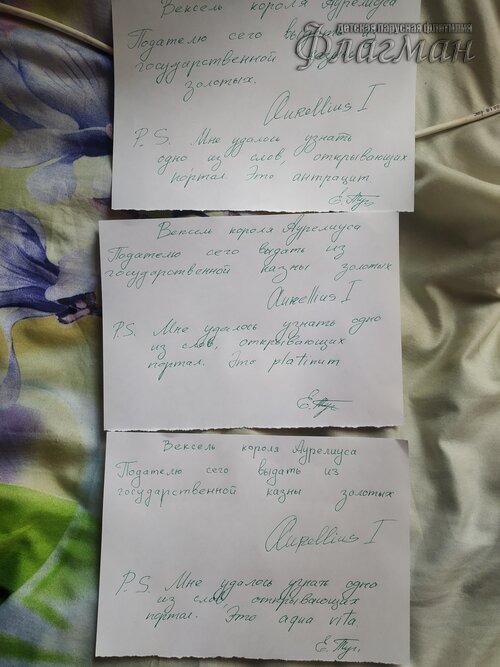 Вексель короля Аурелиуса
детская парусная флотилия
Флагман
Подателю сего выдать из
государственной казны
золотых.
Aurellius I
P.S. Мне удалось узнать
одно из слов, открывающих
портал. Это антрацит
Вексель короля Аурелиуса
Подателю сего выдать из
государственной казны золотых
Aurellius I
P.S. Мне удалось узнать одно
из слов, открывающих
портал. Это platinum
Вексель короля Аурелиуса
Подателю сего выдать из
государственной казны золотых
Aurellius I
P.S. Мне удалось узнать одно
из слов открывающих
портал. Это aqua vita